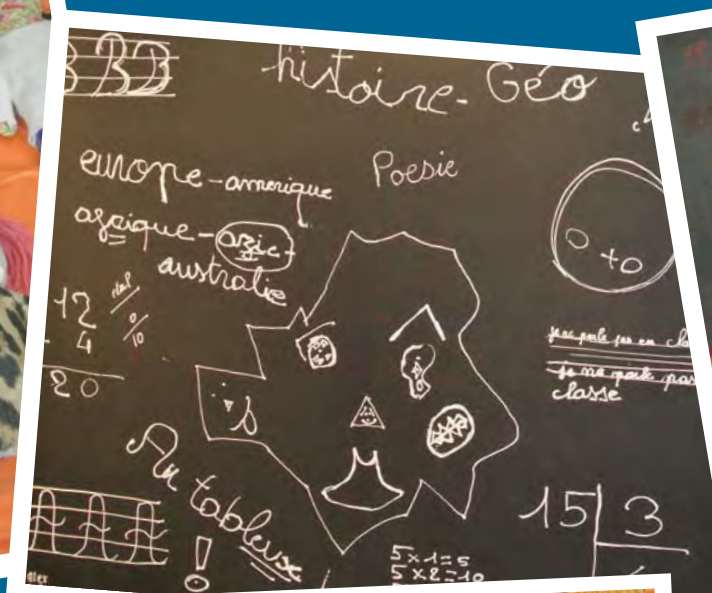 BBB
histoire - Géo
europe - amerique
Poesie
afrique - azie -
australie
12
4
20
0/10
je ne parle pas en cla
je ne parle pas
classe
Au tableau
!
15 3
5 x 1 = 5
5 x 2 = 10